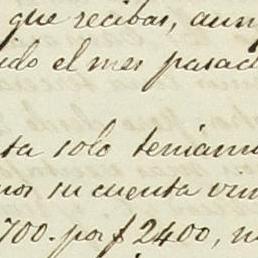 que recibas, aun
ido el mes pasad
ta solo teniam
nos su cuenta
700. por $ 2400,